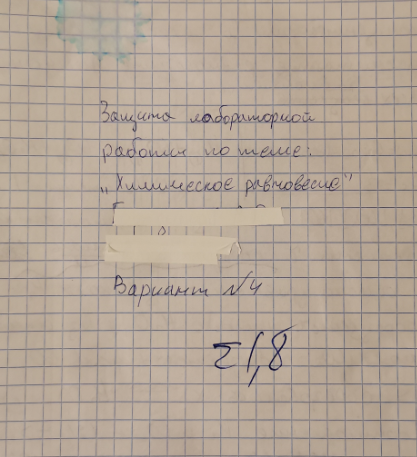 Защита лабораторной
работы по теме:
„Химическое равновесие"
Вариант №4
Σ1,8